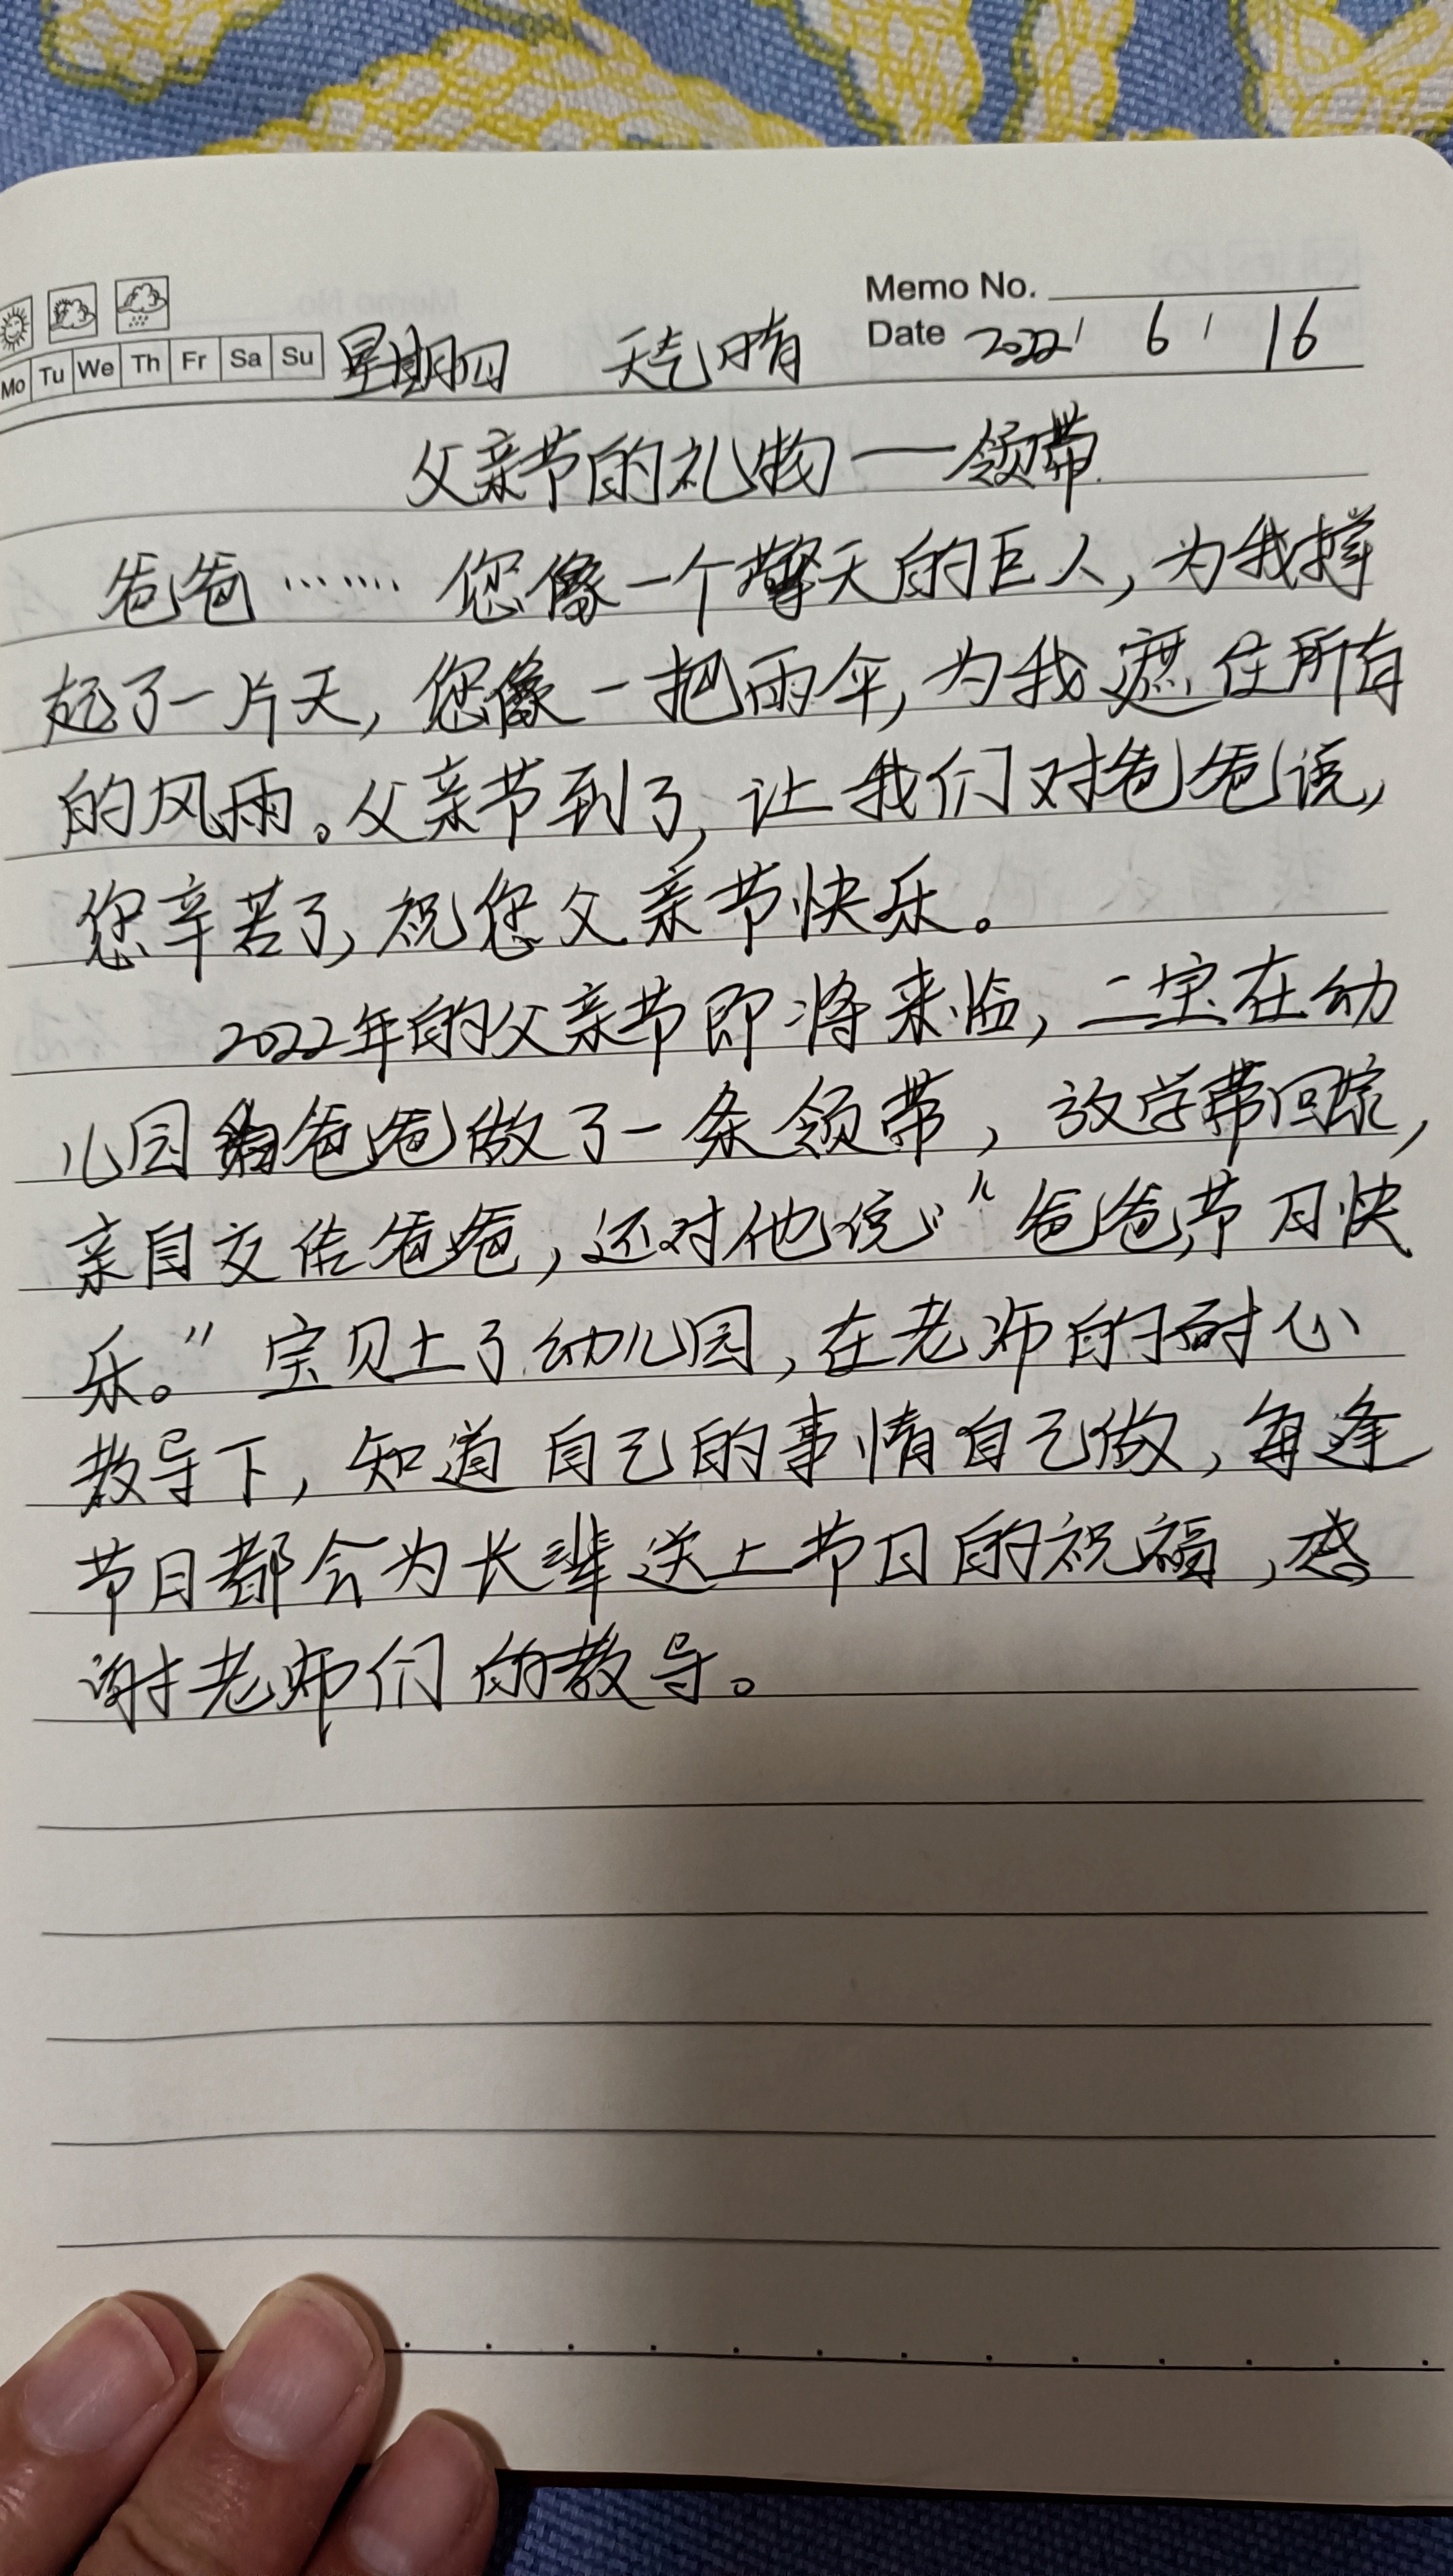 Memo No.
Mo Tu We Th Fr Sa Su 星期四 天气晴 Date 2022 / 6 / 16
父亲节的礼物——领带
爸爸……您像一个擎天的巨人,为我撑
起了一片天,您像一把雨伞,为我遮住所有
的风雨。父亲节到了,让我们对爸爸说,
您辛苦了,祝您父亲节快乐。
2022年的父亲节即将来临,二宝在幼
儿园给爸爸做了一条领带,放学带回家,
亲自交给爸爸,还对他说:“爸爸,节日快
乐。”宝贝上了幼儿园,在老师的耐心
教导下,知道自己的事情自己做,每逢
节日都会为长辈送上节日的祝福,感
谢老师们的教导。